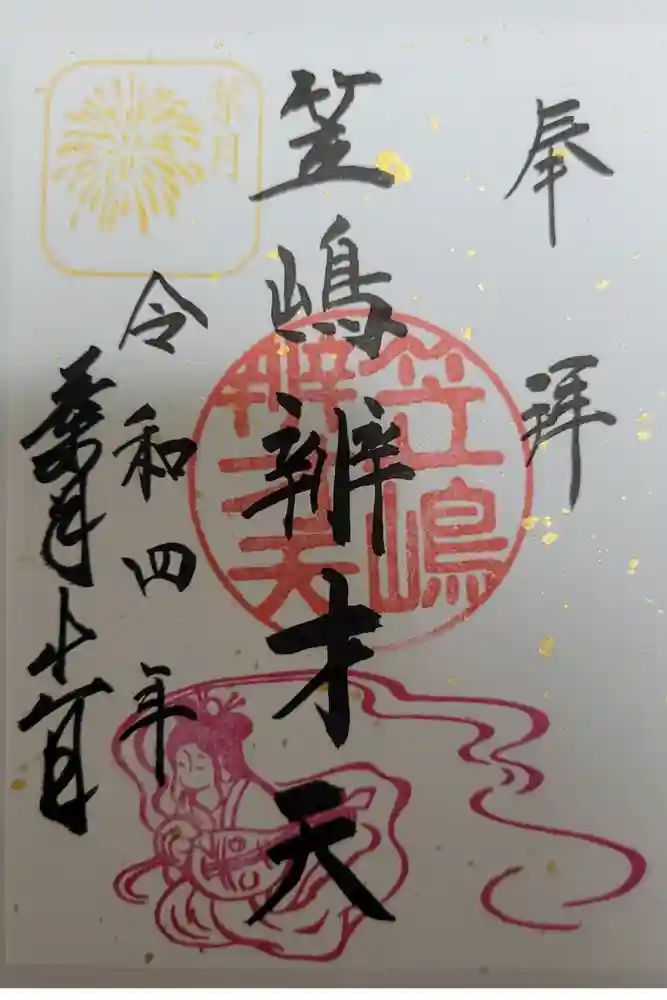 奉拝
笠嶋辨才天
笠嶋
辨才天
令和四年
葉月十
葉月